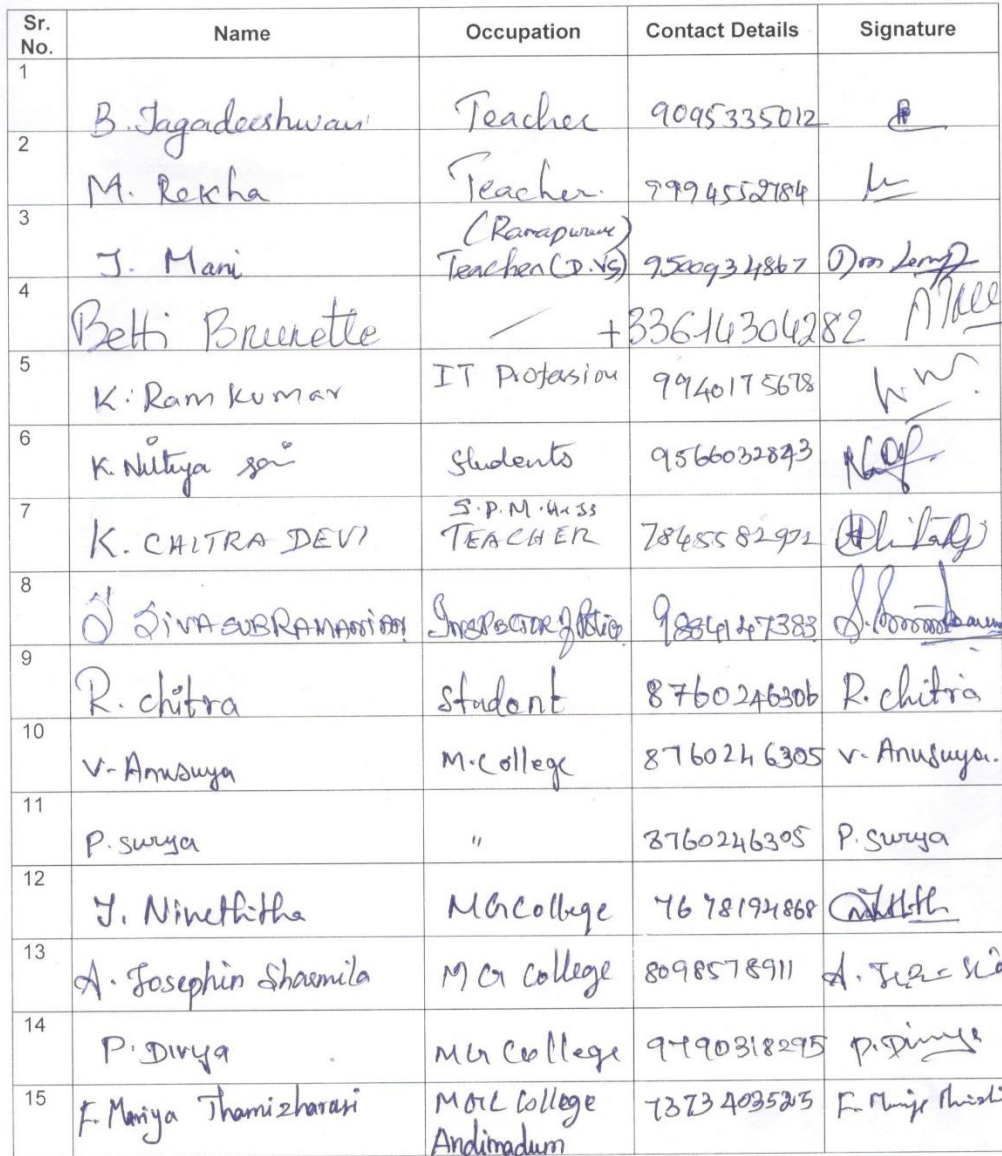 Sr. No. Name Occupation Contact Details Signature
1 B. Jagadeeshwari Teacher 9095335012
2 M. Rekha Teacher. 9994552784
3 J. Mani (Ranapuram) Teacher (D.VS) 9500934867
4 Betti Brunette / +33614304282
5 K. Ramkumar IT Profesion 9940175678
6 K. Nithya sri Students 9566032843
7 K. CHITRA DEVI S.P.M.Hr.SS TEACHER 7845582972
8 SIVASUBRAMANIAN INSPECTOR of Police 9884147383
9 R. chitra Student 8760246306 R. chitra
10 V- Anusuya M.College 8760246305 V- Anusuya.
11 P. Surya " 8760246305 P. Surya
12 J. Ninethitha MG College 7678194868
13 A. Josephin Sharmila MG College 8098578911
14 P. Divya MG College 9790318295 P. Divya
15 F. Mariya Thamizharasi College Andimadum 7373403525